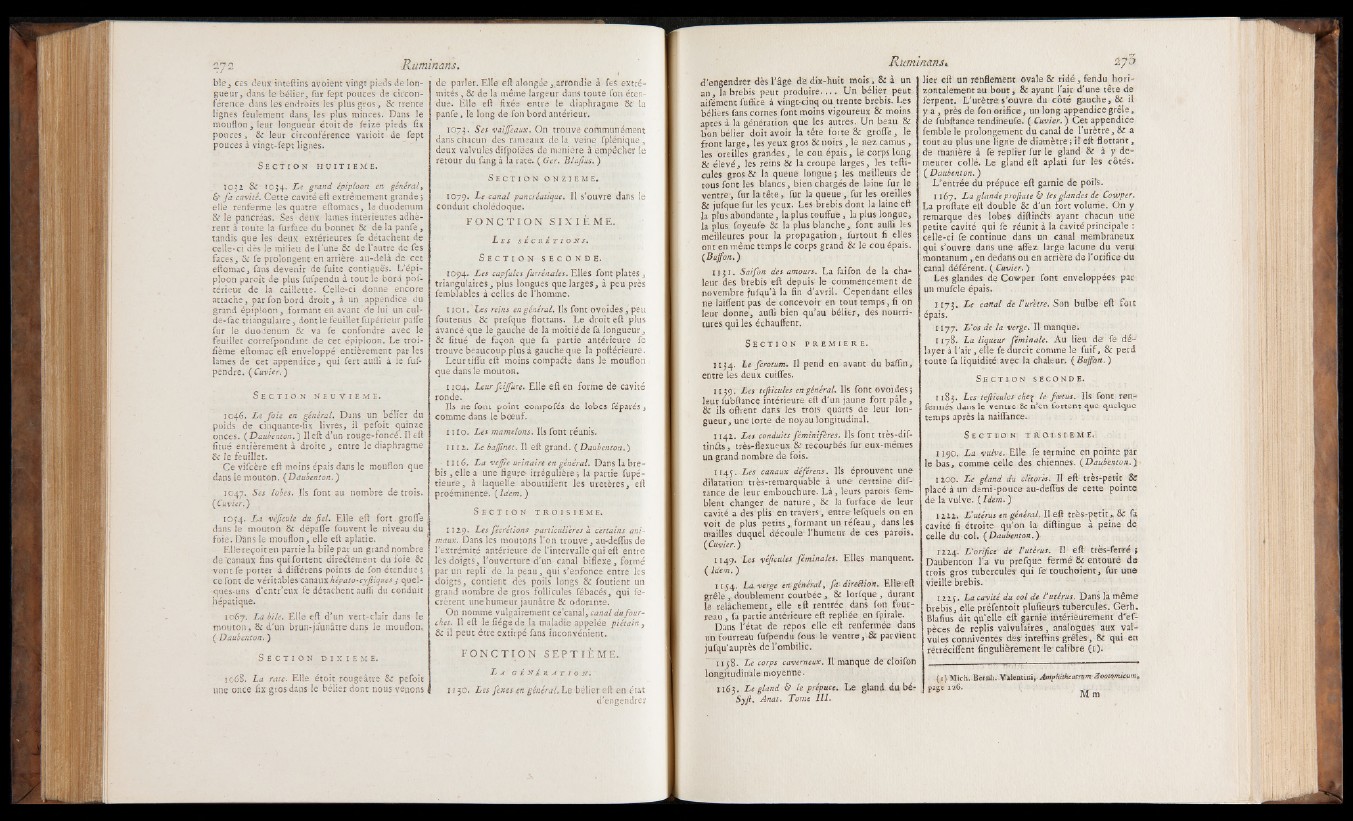 272
Ruminans.
ble, ces deux inteſtins avoient vingt pieds de lon-
gueur, dans le bélier, ſur ſept pouces de circon-
férence dans les endroits les plus gros, & trente
lignes ſeulement dans les plus minces. Dans le
mouflon, leur longueur étoit de ſeize pieds ſix
pouces, & leur circonférence varioit de ſept
pouces à vingt-ſept lignes.
SECTION HUITIEME.
1032 & 1034. Le grand épiploon en général,
& ſa cavité. Cette cavité eſt extrêmement grande;
elle renferme les quatre eſtomacs, le duodenum
& le pancréas. Ses deux lames intérieures adhè-
rent à toute la ſurface du bonnet & de la panſe,
tandis que les deux extérieures ſe détachent de
celle-ci dès le milieu de l'une & de l'autre de ſes
faces, & ſe prolongent en arrière au-delà de cet
eſtomac, ſans devenir de ſuite contiguës. L'épi-
ploon paroît de plus ſuſpendu à tout le bord poſ-
térieur de la caillette. Celle-ci donne encore
attache, par ſon bord droit, à un appendice du
grand épiploon, formant en avant de lui un cul-
de-ſac triangulaire, dont le feuillet ſupérieur paſſe
ſur le duodenum & va ſe confondre avec le
feuillet correſpondant de cet épiploon. Le troi-
ſième eſtomac eſt enveloppé entièrement par les
lames de cet appendice, qui ſert auſſi à le ſuſ-
pendre. (Cuvier.)
SECTION NEUVIEME.
1046. Le foie en général. Dans un bélier du
poids de cinquante-ſix livres, il peſoit quinze
onces. (Daubenton.) Il eſt d'un rouge-foncé. Il eſt
ſitué entièrement à droite, entre le diaphragme
& le feuillet.
Ce viſcère eſt moins épais dans le mouflon que
dans le mouton. (Daubenton.)
1047. Ses lobes. Ils ſont au nombre de trois.
(Cuvier.)
1054. La véſicule du fiel. Elle eſt fort groſſe
dans le mouton & dépaſſe ſouvent le niveau du
foie. Dans le mouflon, elle eſt aplatie.
Elle reçoit en partie la bile par un grand nombre
de canaux fins qui ſortent directement du foie &
vont ſe porter à différens points de ſon étendue;
ce ſont de véritables canaux hépato-cyſtiques; quel-
ques-uns d'entr'eux ſe détachent auſſi du conduit
hépatique.
1067. La bile. Elle eſt d'un vert-clair dans le
mouton, & d'un brun-jaunâtre dans le mouflon.
(Daubenton.)
SECTION DIXIEME.
1068. La rate. Elle étoit rougeâtre & peſoit
une once ſix gros dans le bélier dont nous venons
de parler. Elle eſt alongée, arrondie à ſes extré-
mités, & de la même largeur dans toute ſon éten-
due. Elle eſt fixée entre le diaphragme & la
panſe, le long de ſon bord antérieur.
1073. Ses vaiſſeaux. On trouve communément
dans chacun des rameaux de la veine ſplénique,
deux valvules diſpoſées de manière à empêcher le
retour du ſang à la rate. (Ger. Blaſius.)
SECTION ONZIEME.
1079. Le canal pancréatique. Il s'ouvre dans le
conduit cholédoque.
FONCTION SIXIÈME.
LES SÉCRÉTIONS.
SECTION SECONDE.
1094. Les capſules ſurrénales. Elles ſont plates,
triangulaires, plus longues que larges, à peu près
ſemblables à celles de l'homme.
1101. Les reins en général. Ils ſont ovoïdes, peu
ſoutenus & preſque flottans. Le droit eſt plus
avancé que le gauche de la moitié de ſa longueur,
& ſitué de façon que ſa partie antérieure ſe
trouve beaucoup plus à gauche que la poſtérieure.
Leur tiſſu eſt moins compacte dans le mouflon
que dans le mouton.
1104. Leur ſciſſure. Elle eſt en forme de cavité
ronde.
Ils ne ſont point compoſés de lobes ſéparés,
comme dans le bœuf.
1110. Les mamelons. Ils ſont réunis.
1112. Le baſſinet. Il eſt grand. (Daubenton.)
1116. La veſſie urinaire en général. Dans la bre-
bis, elle a une figure irrégulière; la partie ſupé-
rieure, à laquelle aboutiſſent les uretères, eſt
proéminente. (Idem.)
SECTION TROISIEME.
1129. Les ſécrétions particulières à certains ani-
maux. Dans les moutons l'on trouve, au-deſſus de
l'extrémité antérieure de l'intervalle qui eſt entre
les doigts, l'ouverture d'un canal biflexe, formé
par un repli de la peau, qui s'enfonce entre les
doigts, contient des poils longs & ſoutient un
grand nombre de gros follicules ſébacés, qui ſé-
crètent une humeur jaunâtre & odorante.
On nomme vulgairement ce canal, canal du four-
chet. Il eſt le ſiége de la maladie appelée piétain,
& il peut être extirpé ſans inconvénient.
FONCTION SEPTIÈME.
LA GÉNÉRATION.
1130. Les ſexes en général. Le bélier eſt en état
d'engendrer
Ruminans.
273
d'engendrer dès l'âge de dix-huit mois, & à un
an, la brebis peut produire.... Un bélier peut
aiſément ſuffire à vingt-cinq ou trente brebis. Les
béliers ſans cornes ſont moins vigoureux & moins
aptes à la génération que les autres. Un beau &
bon bélier doit avoir la tête forte & groſſe, le
front large, les yeux gros & noirs, le nez camus,
les oreilles grandes, le cou épais, le corps long
& élevé, les reins & la croupe larges, les teſti-
cules gros & la queue longue; les meilleurs de
tous ſont les blancs, bien chargés de laine ſur le
ventre, ſur la tête, ſur la queue, ſur les oreilles
& juſque ſur les yeux. Les brebis dont la laine eſt
la plus abondante, la plus touffue, la plus longue,
la plus ſoyeuſe & la plus blanche, ſont auſſi les
meilleures pour la propagation, ſurtout ſi elles
ont en même temps le corps grand & le cou épais.
(Buffon.)
1131. Saiſon des amours. La ſaiſon de la cha-
leur des brebis eſt depuis le commencement de
novembre juſqu'à la fin d'avril. Cependant elles
ne laiſſent pas de concevoir en tout temps, ſi on
leur donne, auſſi bien qu'au bélier, des nourri-
tures qui les échauffent.
SECTION PREMIERE.
1134. Le ſcrotum. Il pend en avant du baſſin,
entre les deux cuiſſes.
1139. Les teſticules en général. Ils ſont ovoïdes;
leur ſubſtance intérieure eſt d'un jaune fort pâle,
& ils offrent dans les trois quarts de leur lon-
gueur, une ſorte de noyau longitudinal.
1142. Les conduits ſéminifères. Ils ſont très-diſ-
tincts, très-flexueux & recourbés ſur eux-mêmes
un grand nombre de fois.
1145. Les canaux déférens. Ils éprouvent une
dilatation très-remarquable à une certaine diſ-
tance de leur embouchure. Là, leurs parois ſem-
blent changer de nature, & la ſurface de leur
cavité a des plis en travers, entre leſquels on en
voit de plus petits, formant un réſeau, dans les
mailles duquel découle l'humeur de ces parois.
(Cuvier.)
1149. Les véſicules ſéminales. Elles manquent.
(Idem.)
1154. La verge en général, ſa direction. Elle eſt
grêle, doublement courbée, & lorſque, durant
le relâchement, elle eſt rentrée dans ſon four-
reau, ſa partie antérieure eſt repliée en ſpirale.
Dans l'état de repos elle eſt renfermée dans
un fourreau ſuſpendu ſous le ventre, & parvient
juſqu'auprès de l'ombilic.
1158. Le corps caverneux. Il manque de cloiſon
longitudinale moyenne.
1163. Le gland & le prépuce. Le gland du bé-
Syſt. Anat. Tome III.
lier eſt un renflement ovale & ridé, fendu hori-
zontalement au bout, & ayant l'air d'une tête de
ſerpent. L'urètre s'ouvre du côté gauche, & il
y a, près de ſon orifice, un long appendice grêle,
de ſubſtance tendineuſe. (Cuvier.) Cet appendice
ſemble le prolongement du canal de l'urètre, & a
tout au plus une ligne de diamètre; il eſt flottant,
de manière à ſe replier ſur le gland & à y de-
meurer collé. Le gland eſt aplati ſur les côtés.
(Daubenton.)
L'entrée du prépuce eſt garnie de poils.
1167. La glande proſtate & les glandes de Cowper.
La proſtate eſt double & d'un fort volume. On y
remarque des lobes diſtincts ayant chacun une
petite cavité qui ſe réunit à la cavité principale :
celle-ci ſe continue dans un canal membraneux
qui s'ouvre dans une aſſez large lacune du veru
montanum, en dedans ou en arrière de l'orifice du
canal déférent. (Cuvier.)
Les glandes de Cowper ſont enveloppées par
un muſcle épais.
1173. Le canal de l'urètre. Son bulbe eſt fort
épais.
1177. L'os de la verge. Il manque.
1178. La liqueur ſéminale. Au lieu de ſe dé-
layer à l'air, elle ſe durcit comme le ſuif, & perd
toute ſa liquidité avec la chaleur. (Buffon.)
SECTION SECONDE.
1183. Les teſticules chez le fœtus. Ils ſont ren-
fermés dans le ventre & n'en ſortent que quelque
temps après la naiſſance.
SECTION TROISIEME.
1190. La vulve. Elle ſe termine en pointe par
le bas, comme celle des chiennes. (Daubenton.)
1200. Le gland du clitoris. Il eſt très-petit &
placé à un demi-pouce au-deſſus de cette pointe
de la vulve. (Idem.)
1222. L'utérus en général. Il eſt très-petit, & ſa
cavité ſi étroite qu'on la diſtingue à peine de
celle du col. (Daubenton.)
1224. L'orifice de l'utérus. Il eſt très-ſerré;
Daubenton l'a vu preſque fermé & entouré de
trois gros tubercules qui ſe touchoient, ſur une
vieille brebis.
1225. La cavité du col de l'utérus. Dans la même
brebis, elle préſentoit pluſieurs tubercules. Gerh.
Blaſius dit qu'elle eſt garnie intérieurement d'eſ-
pèces de replis valvulaires, analogues aux val-
vules conniventes des inteſtins grêles, & qui en
rétréciſſent ſingulièrement le calibre (1).
(1) Mich. Bernh. Valentini, Amphitheatrum Zootomicum,
page 126.
M m